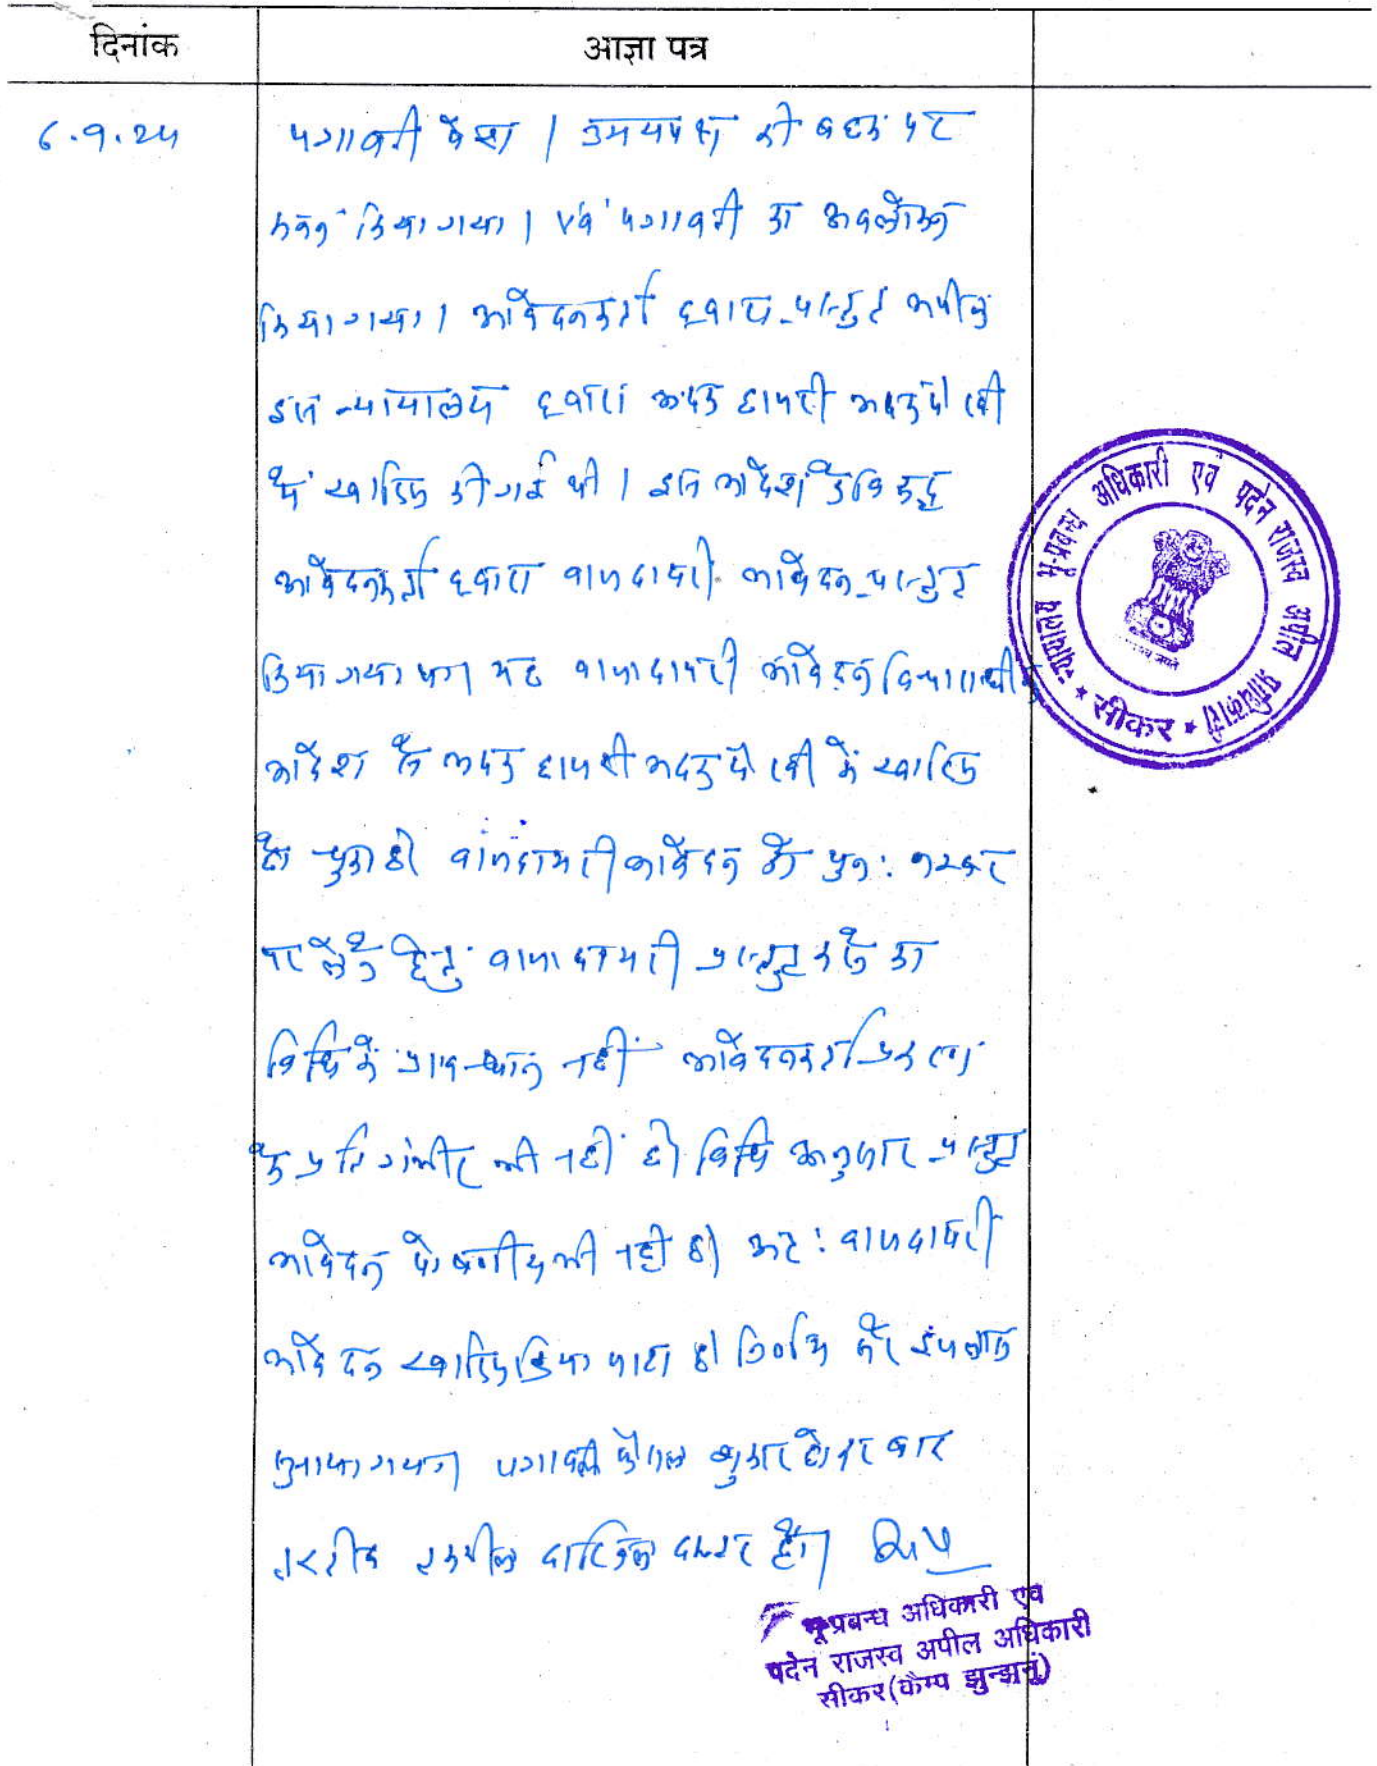 दिनांक
आज्ञा पत्र
6.9.24
पत्रावली पेश। उभयपक्ष की बहस पर
मनन किया गया। एवं पत्रावली का अवलोकन
किया गया। आवेदनकर्ता द्वारा प्रस्तुत अपील
इस न्यायालय द्वारा अदम हाजरी अदम पैरवी
में खारिज की गई थी। इस आदेश के विरूद्ध
आवेदनकर्ता द्वारा बाजदायरी आवेदन प्रस्तुत
किया गया था। यह बाजदायरी आवेदन
आदेश से अदम हाजरी अदम पैरवी में खारिज
हो चुका है। बाजदायरी आवेदन को पुनः नम्बर
पर लेने हेतु बाजदायरी प्रस्तुत करने का
विधि में प्रावधान नहीं आवेदनकर्ता प्रकरण
के प्रति गंभीर भी नहीं है। विधि अनुसार प्रस्तुत
आवेदन पोषणीय भी नहीं है। अतः बाजदायरी
आवेदन खारिज किया जाता है। निर्णय सरे इजलास
सुनाया गया। पत्रावली फैसल शुमार होकर बाद
तरतीब तकमील दाखिल दफ्तर हो।
न्यायालय भू-प्रबन्ध अधिकारी एवं पदेन राजस्व अपील प्राधिकारी
* सीकर *
भू-प्रबन्ध अधिकारी एवं
पदेन राजस्व अपील अधिकारी
सीकर (कैम्प झुन्झुनूं)